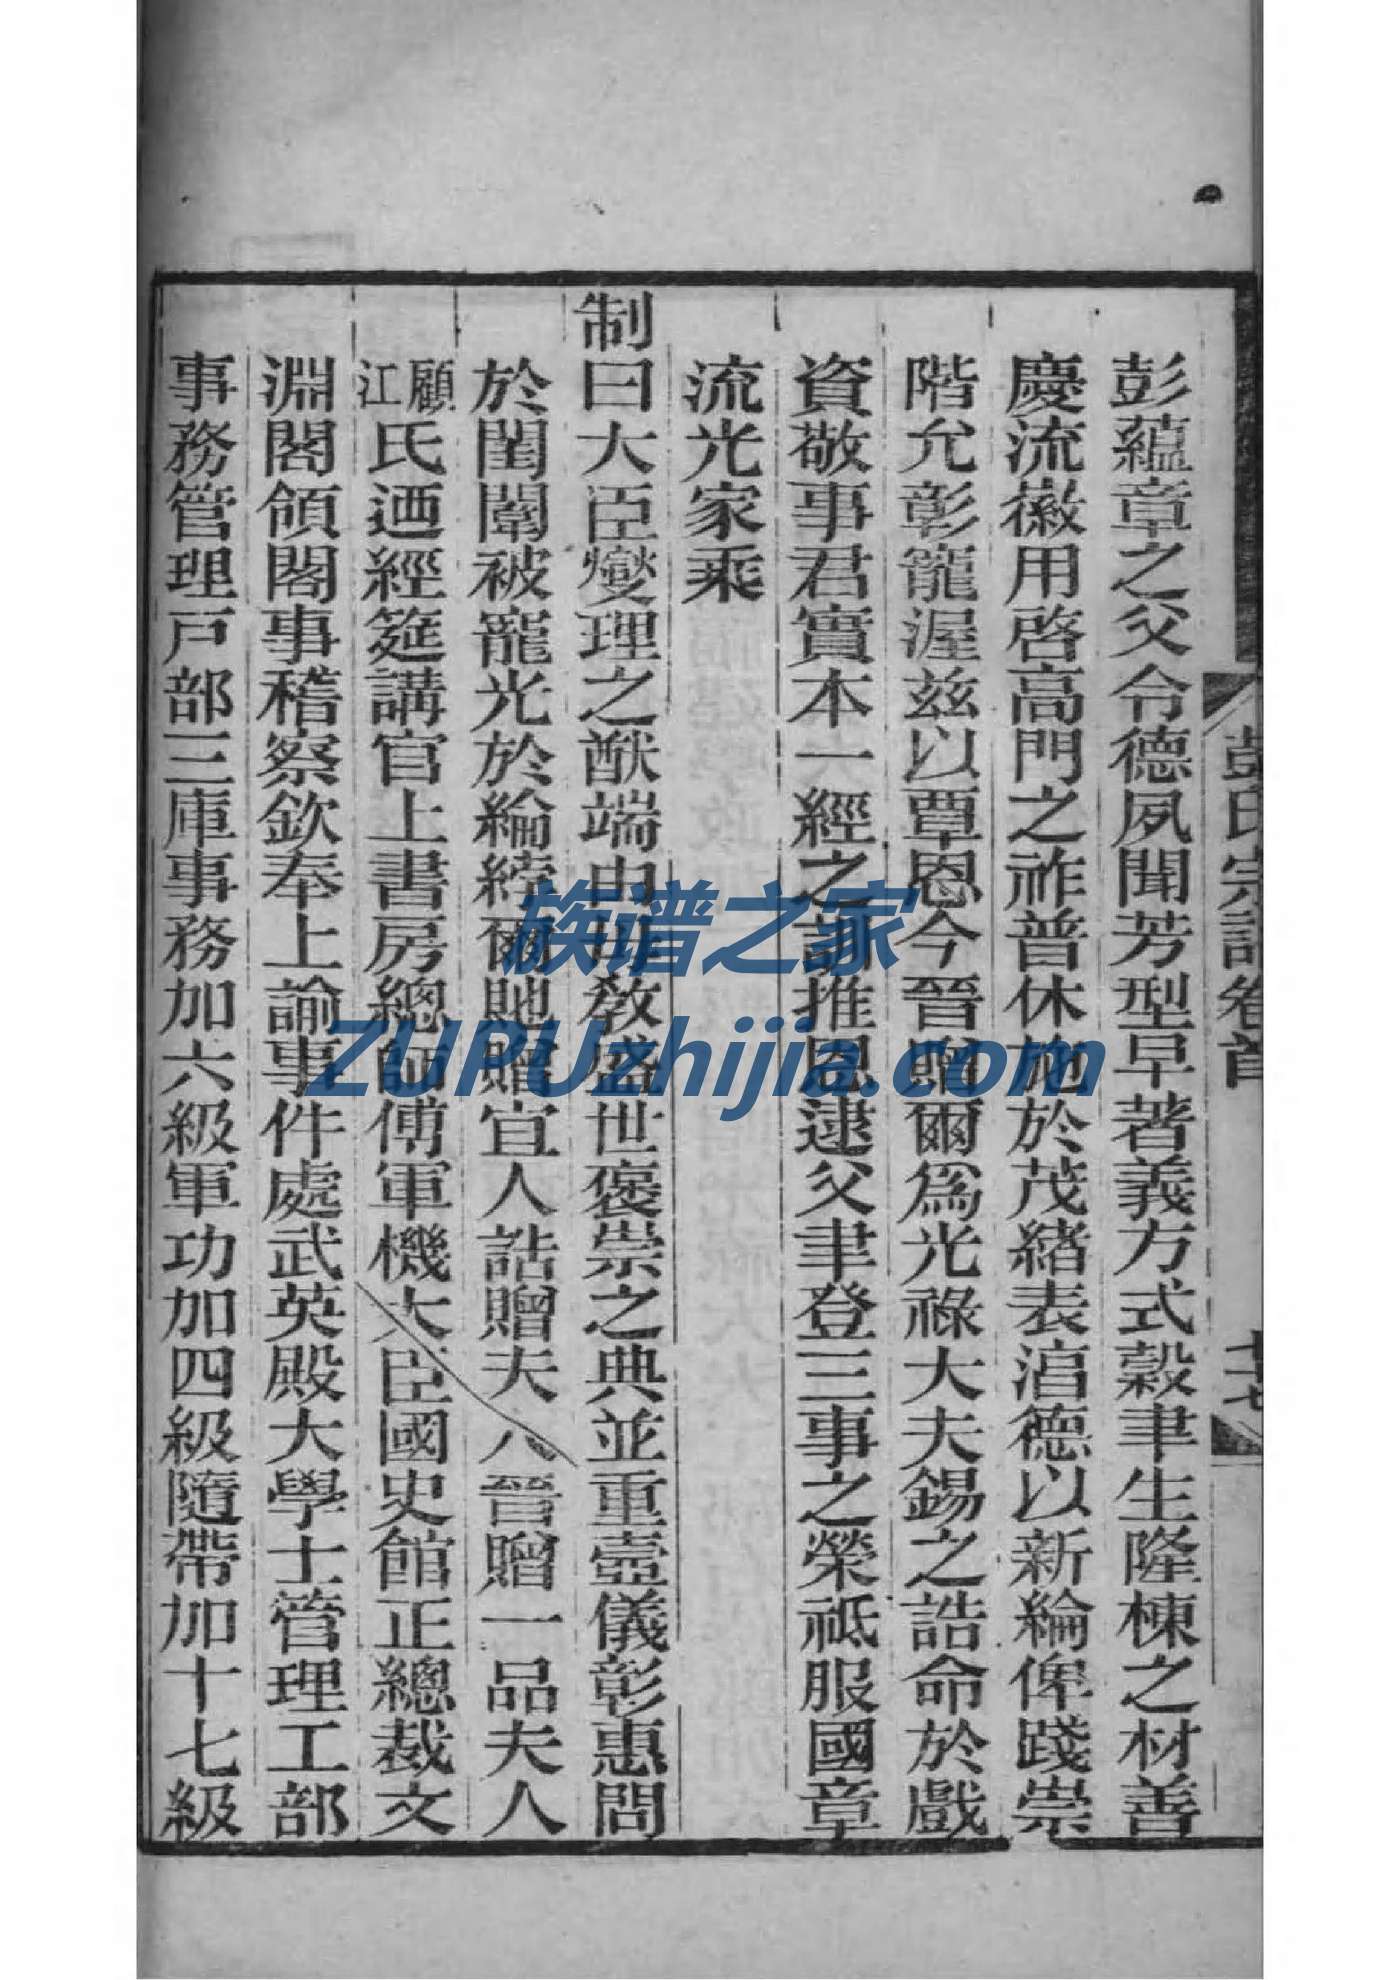 彭蘊章之父令德夙聞芳型早著義方式穀聿生隆棟之材善
慶流徽用啓高門之祚普休施於茂緒表濳德以新綸俾踐崇
階允彰寵渥茲以覃恩今晉贈爾爲光祿大夫錫之誥命於戲
資敬事君實本一經之訓推恩逮父聿登三事之榮祗服國章
流光家乘
制曰大臣燮理之猷端由母教盛世褒崇之典並重壼儀彰惠問
於閨闈被寵光於綸綍爾貤贈宜人誥贈夫人晉贈一品夫人
顧江氏迺經筵講官上書房總師傅軍機大臣國史館正總裁文
淵閣領閣事稽察欽奉上諭事件處武英殿大學士管理工部
事務管理戸部三庫事務加六級軍功加四級隨帶加十七級
彭氏宗譜卷首
族谱之家
ZUPUzhijia.com